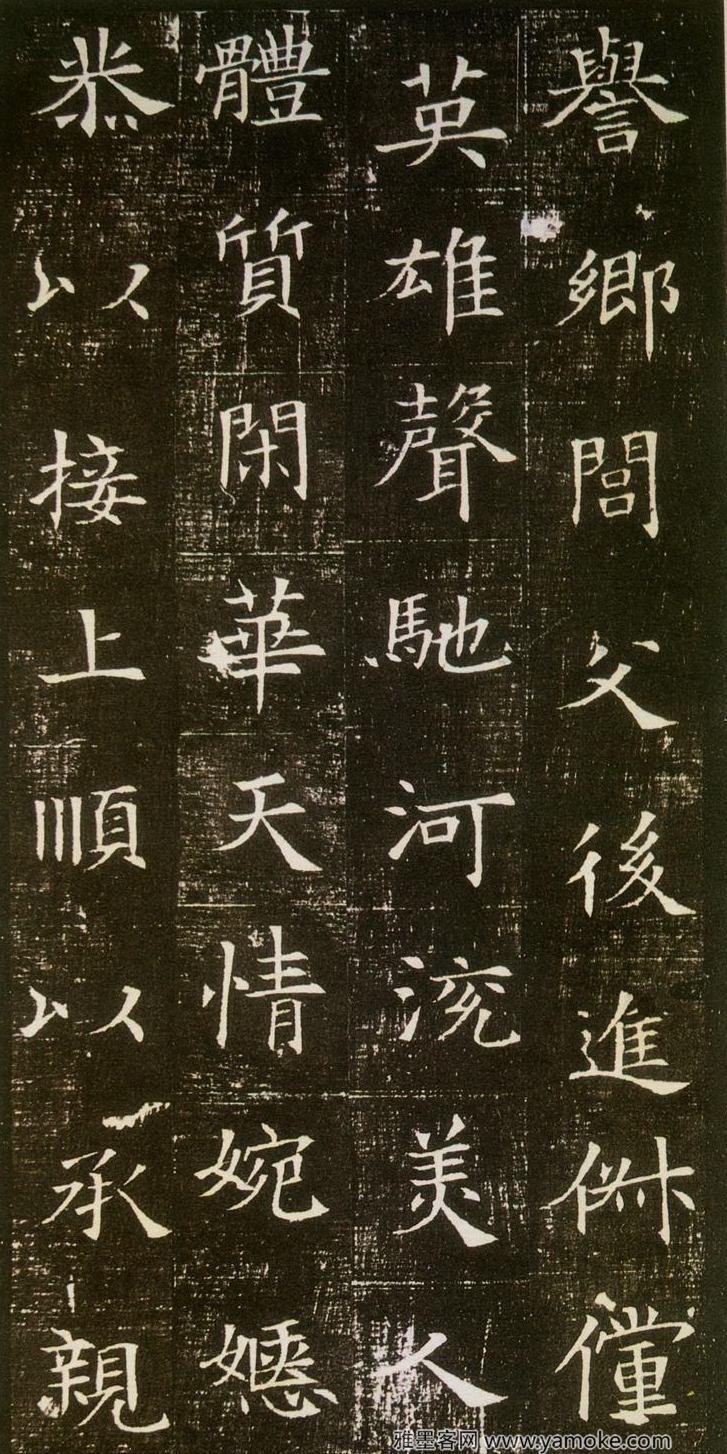 譽鄉閭父後進俯僮
英雄聲馳河浣美人
體質閑華天情婉嫕
恭以接上順以承親
雅墨客网 www.yamoke.com